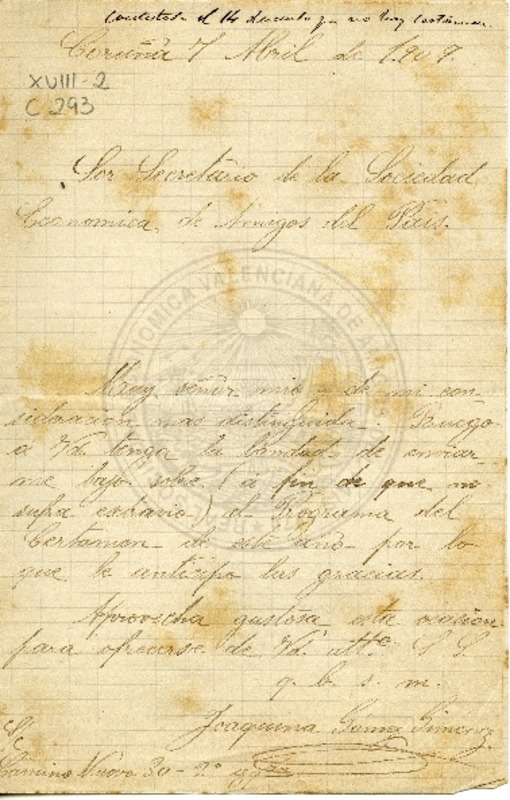 Contestada el 14 diciendo que no hay certámen.
Coruña 7 Abril de 1909.
XVIII-2
C 293
Sor Secretario de la Sociedad
Economica de Amigos del Pais.
Muy señor mio y de mi con-
sideracion mas distinguida. Ruego
a Vd. tenga la bondad de enviar-
me bajo sobre (a fin de que no
sufra extravio) el Programa del
Certamen de este año por lo
que le anticipo las gracias.
Aprovecha gustosa esta ocasion
para ofrecerse de Vd. atta S. S.
q. b. s. m.
Joaquina Gómez Gimenez
Camino Nuevo 30-2º